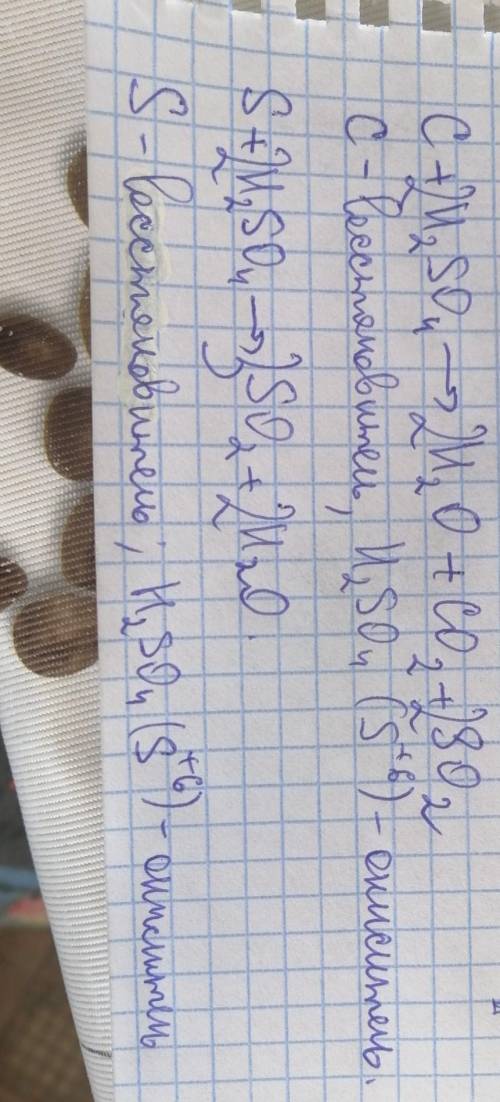 C + 2H₂SO₄ → 2H₂O + CO₂ + 2SO₂
C - восстановитель, H₂SO₄ (S⁺⁶) - окислитель.
S + 2H₂SO₄ → 3SO₂ + 2H₂O.
S - восстановитель, H₂SO₄ (S⁺⁶) - окислитель